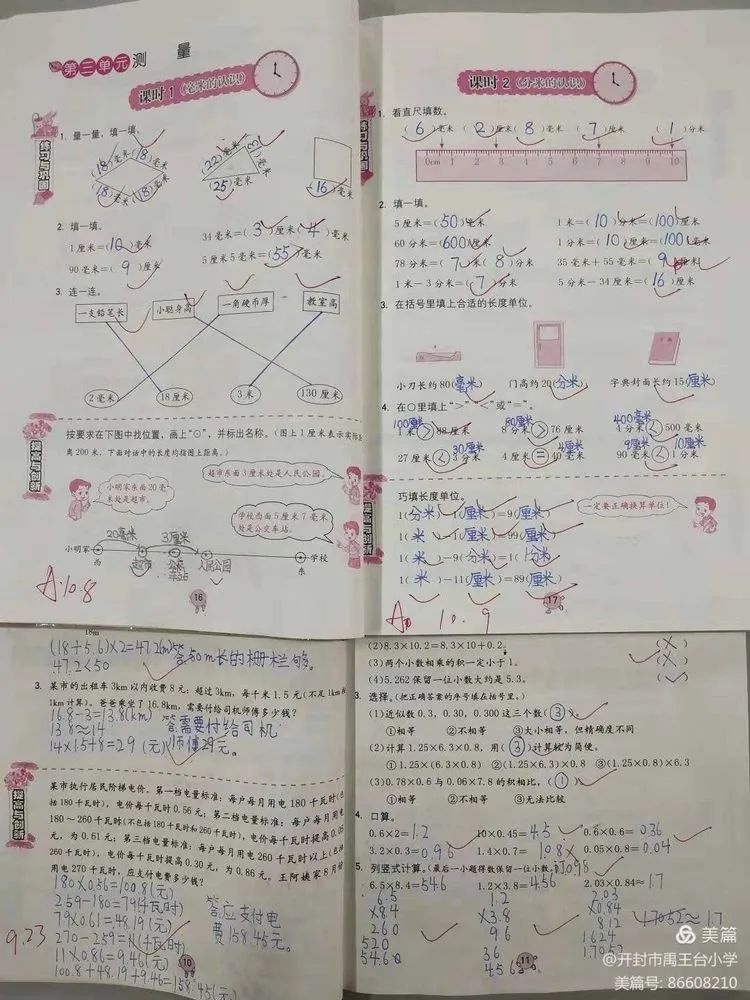 第三单元 测 量
课时1 (毫米的认识)
练习与巩固
1. 量一量,填一填。
(18)毫米 (18)毫米
(18)毫米 (18)毫米
(22)毫米
(25)毫米
(16)毫米
2. 填一填。
1厘米=(10)毫米 34毫米=(3)厘米(4)毫米
90毫米=(9)厘米 5厘米5毫米=(55)毫米
3. 连一连。
一支铅笔长 小聪身高 一角硬币厚 教室高
2毫米 18厘米 3米 130厘米
提高与创新
按要求在下图中找位置,画上“⊙”,并标出名称。(图上1厘米表示实际距
离200米,下面对话中的长度均指图上距离。)
小明家东面20毫
米处是超市。
超市东面3厘米处是人民公园。
学校西面5厘米7毫
米处是公交车站。
20毫米 3厘米
小明家 西 超市 公交车站 人民公园 学校 东
A 10.8
16
课时2 (分米的认识)
练习与巩固
1. 看直尺填数。
(6)毫米 (2)厘米 (8)毫米 (7)厘米 (1)分米
0cm 1 2 3 4 5 6 7 8 9 10
2. 填一填。
5厘米=(50)毫米 1米=(10)分米=(100)厘米
60分米=(600)厘米 1分米=(10)厘米=(100)毫米
78分米=(7)米(8)分米 35毫米+55毫米=(9)厘米
1米-3分米=(7)分米 5分米-34厘米=(16)厘米
3. 在括号里填上合适的长度单位。
小刀长约80(毫米) 门高约20(分米) 字典封面长约15(厘米)
4. 在○里填上“>”“<”或“=”。
100厘米 80厘米 400毫米
1米>88厘米 8分米>76厘米 4分米<500毫米
30厘米 4厘米 9厘米 10厘米
27厘米<3分米 4厘米=40毫米 90毫米<1分米
提高与创新
巧填长度单位。
一定要正确换算单位!
1(分米)-1(厘米)=9(厘米)
1(米)-1(厘米)=99(厘米)
1(米)-9(分米)=1(分米)
1(米)-11(厘米)=89(厘米)
A 10.9
17
18m
(18+5.6)×2=47.2(m)
47.2<50
答:50m长的栅栏够。
3. 某市的出租车3km以内收费8元;超过3km,每千米1.5元(不足1km按
1km计算)。爸爸乘坐了16.8km,需要付给司机师傅多少钱?
16.8-3=13.8(km)
13.8≈14
14×1.5+8=29(元)
答:需要付给司机
师傅29元。
提高与创新
某市执行居民阶梯电价。第一档电量标准:每户每月用电180千瓦时(包
括180千瓦时),电价每千瓦时0.56元;第二档电量标准:每户每月用电
180~260千瓦时(不包括180千瓦时和260千瓦时),电价每千瓦时提高0.05
元,为0.61元;第三档电量标准:每户每月用电260千瓦时以上(包括
260千瓦时),电价每千瓦时提高0.30元,为0.86元。王阿姨家8月份
用电270千瓦时,应支付电费多少钱?
180×0.56=100.8(元)
259-180=79(千瓦时)
79×0.61=48.19(元)
270-259=11(千瓦时)
11×0.86=9.46(元)
100.8+48.19+9.46=158.45(元)
答:应支付电
费158.45元。
9.23
10
(2)8.3×10.2=8.3×10+0.2。 (×)
(3)两个小数相乘的积一定小于1。 (×)
(4)5.262保留一位小数大约是5.3。
3. 选择。(把正确答案的序号填在括号里。)
(1)近似数0.3,0.30,0.300这三个数(③)
①相等 ②不相等 ③大小相等,但精确度不同
(2)计算1.25×6.3×0.8,用(③)计算较为简便。
①1.25×(6.3×0.8) ②(1.25×6.3)×0.8 ③(1.25×0.8)×6.3
(3)0.78×0.6与0.06×7.8的积相比,(①)
①相等 ②不相等 ③无法比较
4. 口算。
0.6×2=1.2 10×0.45=4.5 0.6×0.6=0.36
3.2×0.3=0.96 1.4×0.7= 0.05×0.8=0.04
5. 列竖式计算。(最后一小题得数保留一位小数)
6.5×8.4=54.6 1.2×3.8=4.56 2.03×0.84≈1.7
6.5 1.2 2.03
×8.4 ×3.8 ×0.84
260 96 812
520 36 1624
54.60 4.56 1.7052
11
美篇
@开封市禹王台小学
美篇号: 86608210